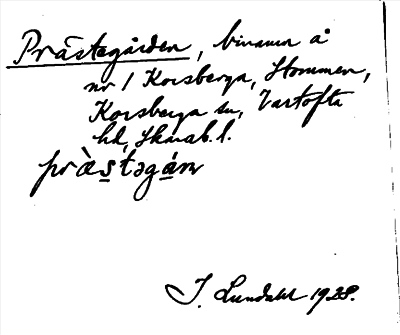 Prästegården, binamn å
nr 1 Korsberga, Hommen,
Korsberga sn, Vartofta
hd, Skarab. l.
præ̀stəgán
I. Lundahl 1928.